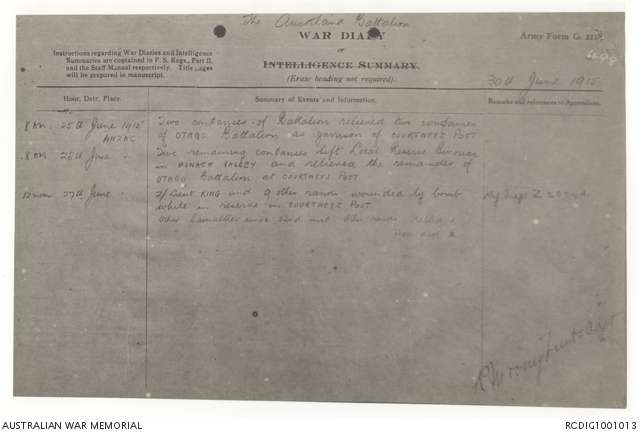 The Auckland Battalion
WAR DIARY
or
INTELLIGENCE SUMMARY.
(Erase heading not required).
Army Form C. 2118.
Instructions regarding War Diaries and Intelligence
Summaries are contained in F. S. Regs., Part II.
and the Staff Manual respectively. Title pages
will be prepared in manuscript.
30th June 1915
Hour, Date, Place.
Summary of Events and Information.
Remarks and references to Appendices.
8 AM. 25th June 1915 Two companies of Battalion relieved two companies
ANZAC of OTAGO Battalion as garrison of COURTNEYS POST
8 AM. 26th June Two remaining companies left Local Reserve Bivouac
in MONASH VALLEY and relieved the remainder of
OTAGO Battalion at COURTNEYS POST
12 noon 27th June 2/Lieut KING and 9 other ranks wounded by bomb
while in reserve in COURTNEYS POST
Other Casualties since 22nd inst Other ranks
AUSTRALIAN WAR MEMORIAL
RCDIG1001013